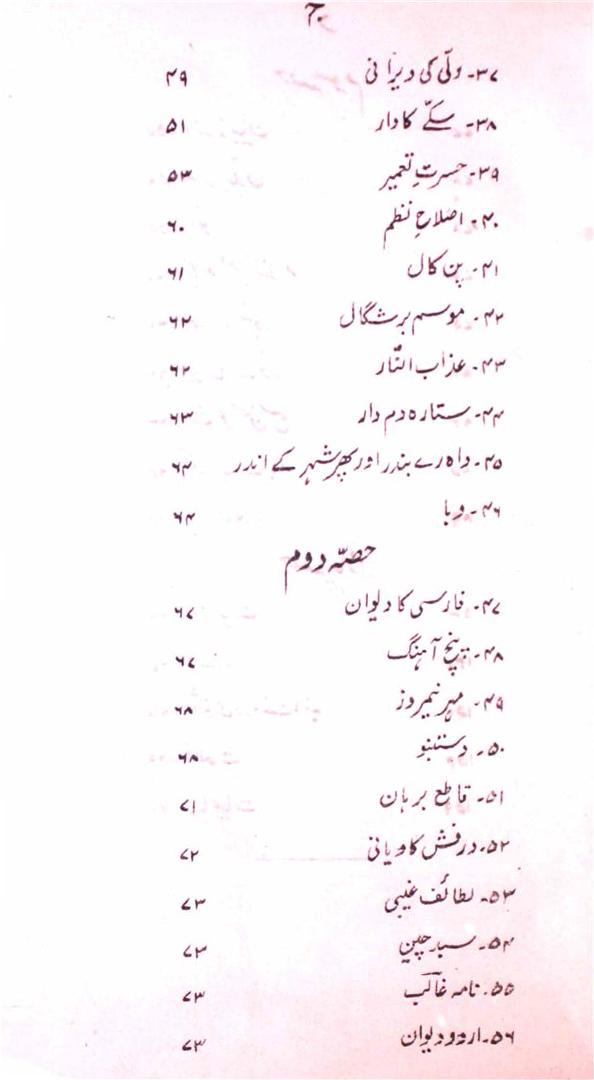 ج
۳۷۔ دلّی کی ویرانی ۴۹
۳۸۔ سکّے کا وار ۵۱
۳۹۔ حسرتِ تعمیر ۵۳
۴۰۔ اصلاحِ نظم ۶۰
۴۱۔ پن کال ۶۱
۴۲۔ موسم برشگال ۶۲
۴۳۔ عذاب النّار ۶۲
۴۴۔ ستارہ دم دار ۶۳
۴۵۔ واہ رے بندر اور پھر شہر کے اندر ۶۴
۴۶۔ وبا ۶۴
حصّہ دوم
۴۷۔ فارسی کا دیوان ۶۷
۴۸۔ پنج آہنگ ۶۷
۴۹۔ مہر نیمروز ۶۸
۵۰۔ دستنبو ۶۸
۵۱۔ قاطع برہان ۷۱
۵۲۔ درفش کاویانی ۷۲
۵۳۔ لطائف غیبی ۷۳
۵۴۔ سبد چین ۷۳
۵۵۔ نامہ غالب ۷۳
۵۶۔ اردو دیوان ۷۳